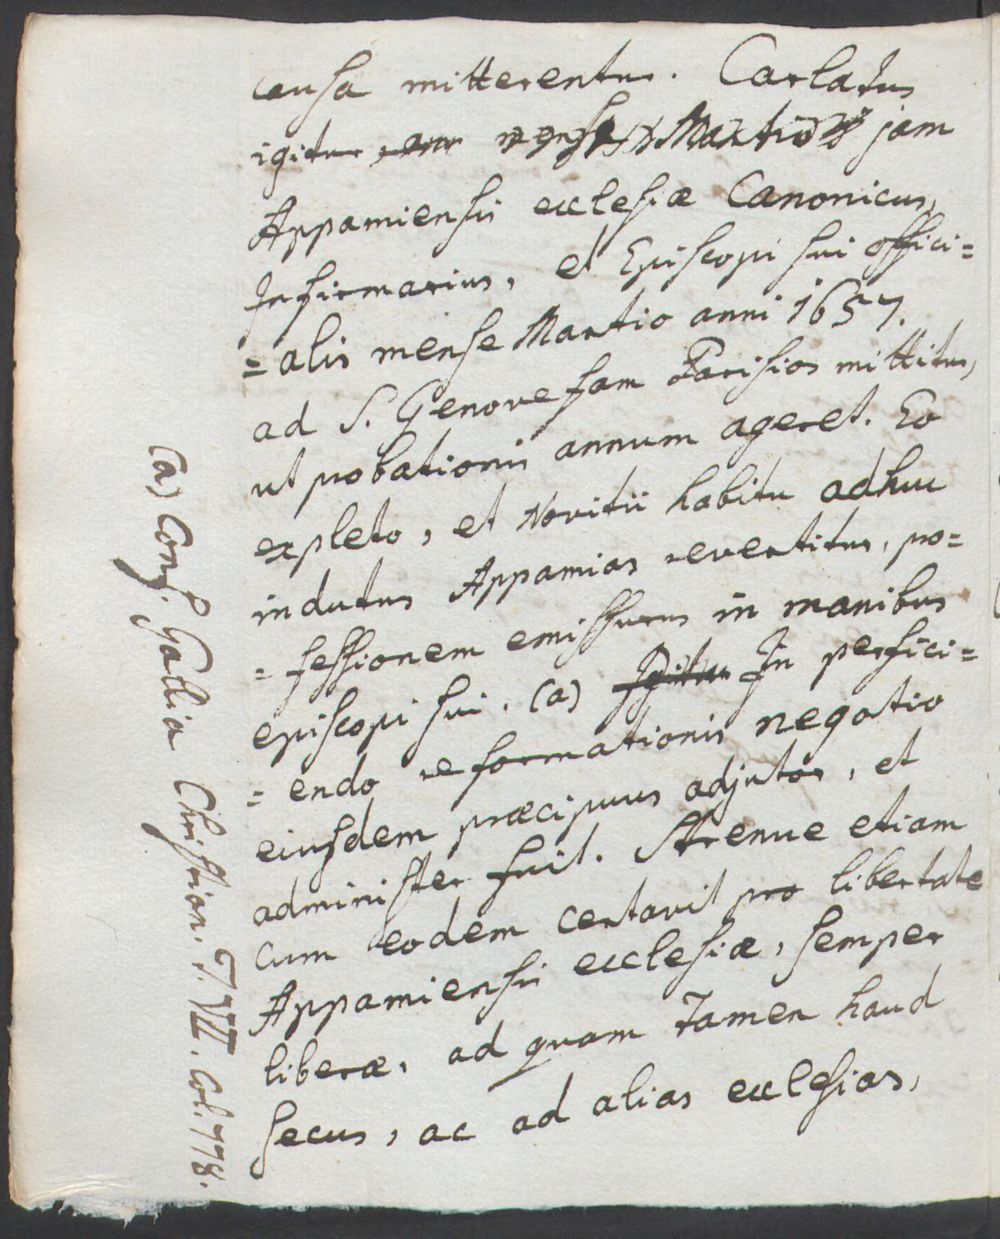 causa mitterentur. Carlatus
igitur mense Martio jam
Appamiensis ecclesiæ Canonicus,
Infirmarius, et Episcopi sui offici=
=alis mense Martio anni 1657.
ad S. Genovefam Parisios mittitur,
ut probationis annum ageret. Eo
expleto, et Novitii habitu adhuc
indutus Appamias revertitur, pro=
=fessionem emissurus in manibus
episcopi sui. (a) Igitur In perfici=
=endo reformationis negotio
eiusdem præcipuus adjutor, et
administer fuit. Strenue etiam
cum eodem certavit pro libertate
Appamiensis ecclesiæ, semper
liberæ, ad quam tamen haud
secus, ac ad alias ecclesias,
(a) Conf. Gallia Christian. T. VII. Col. 778.